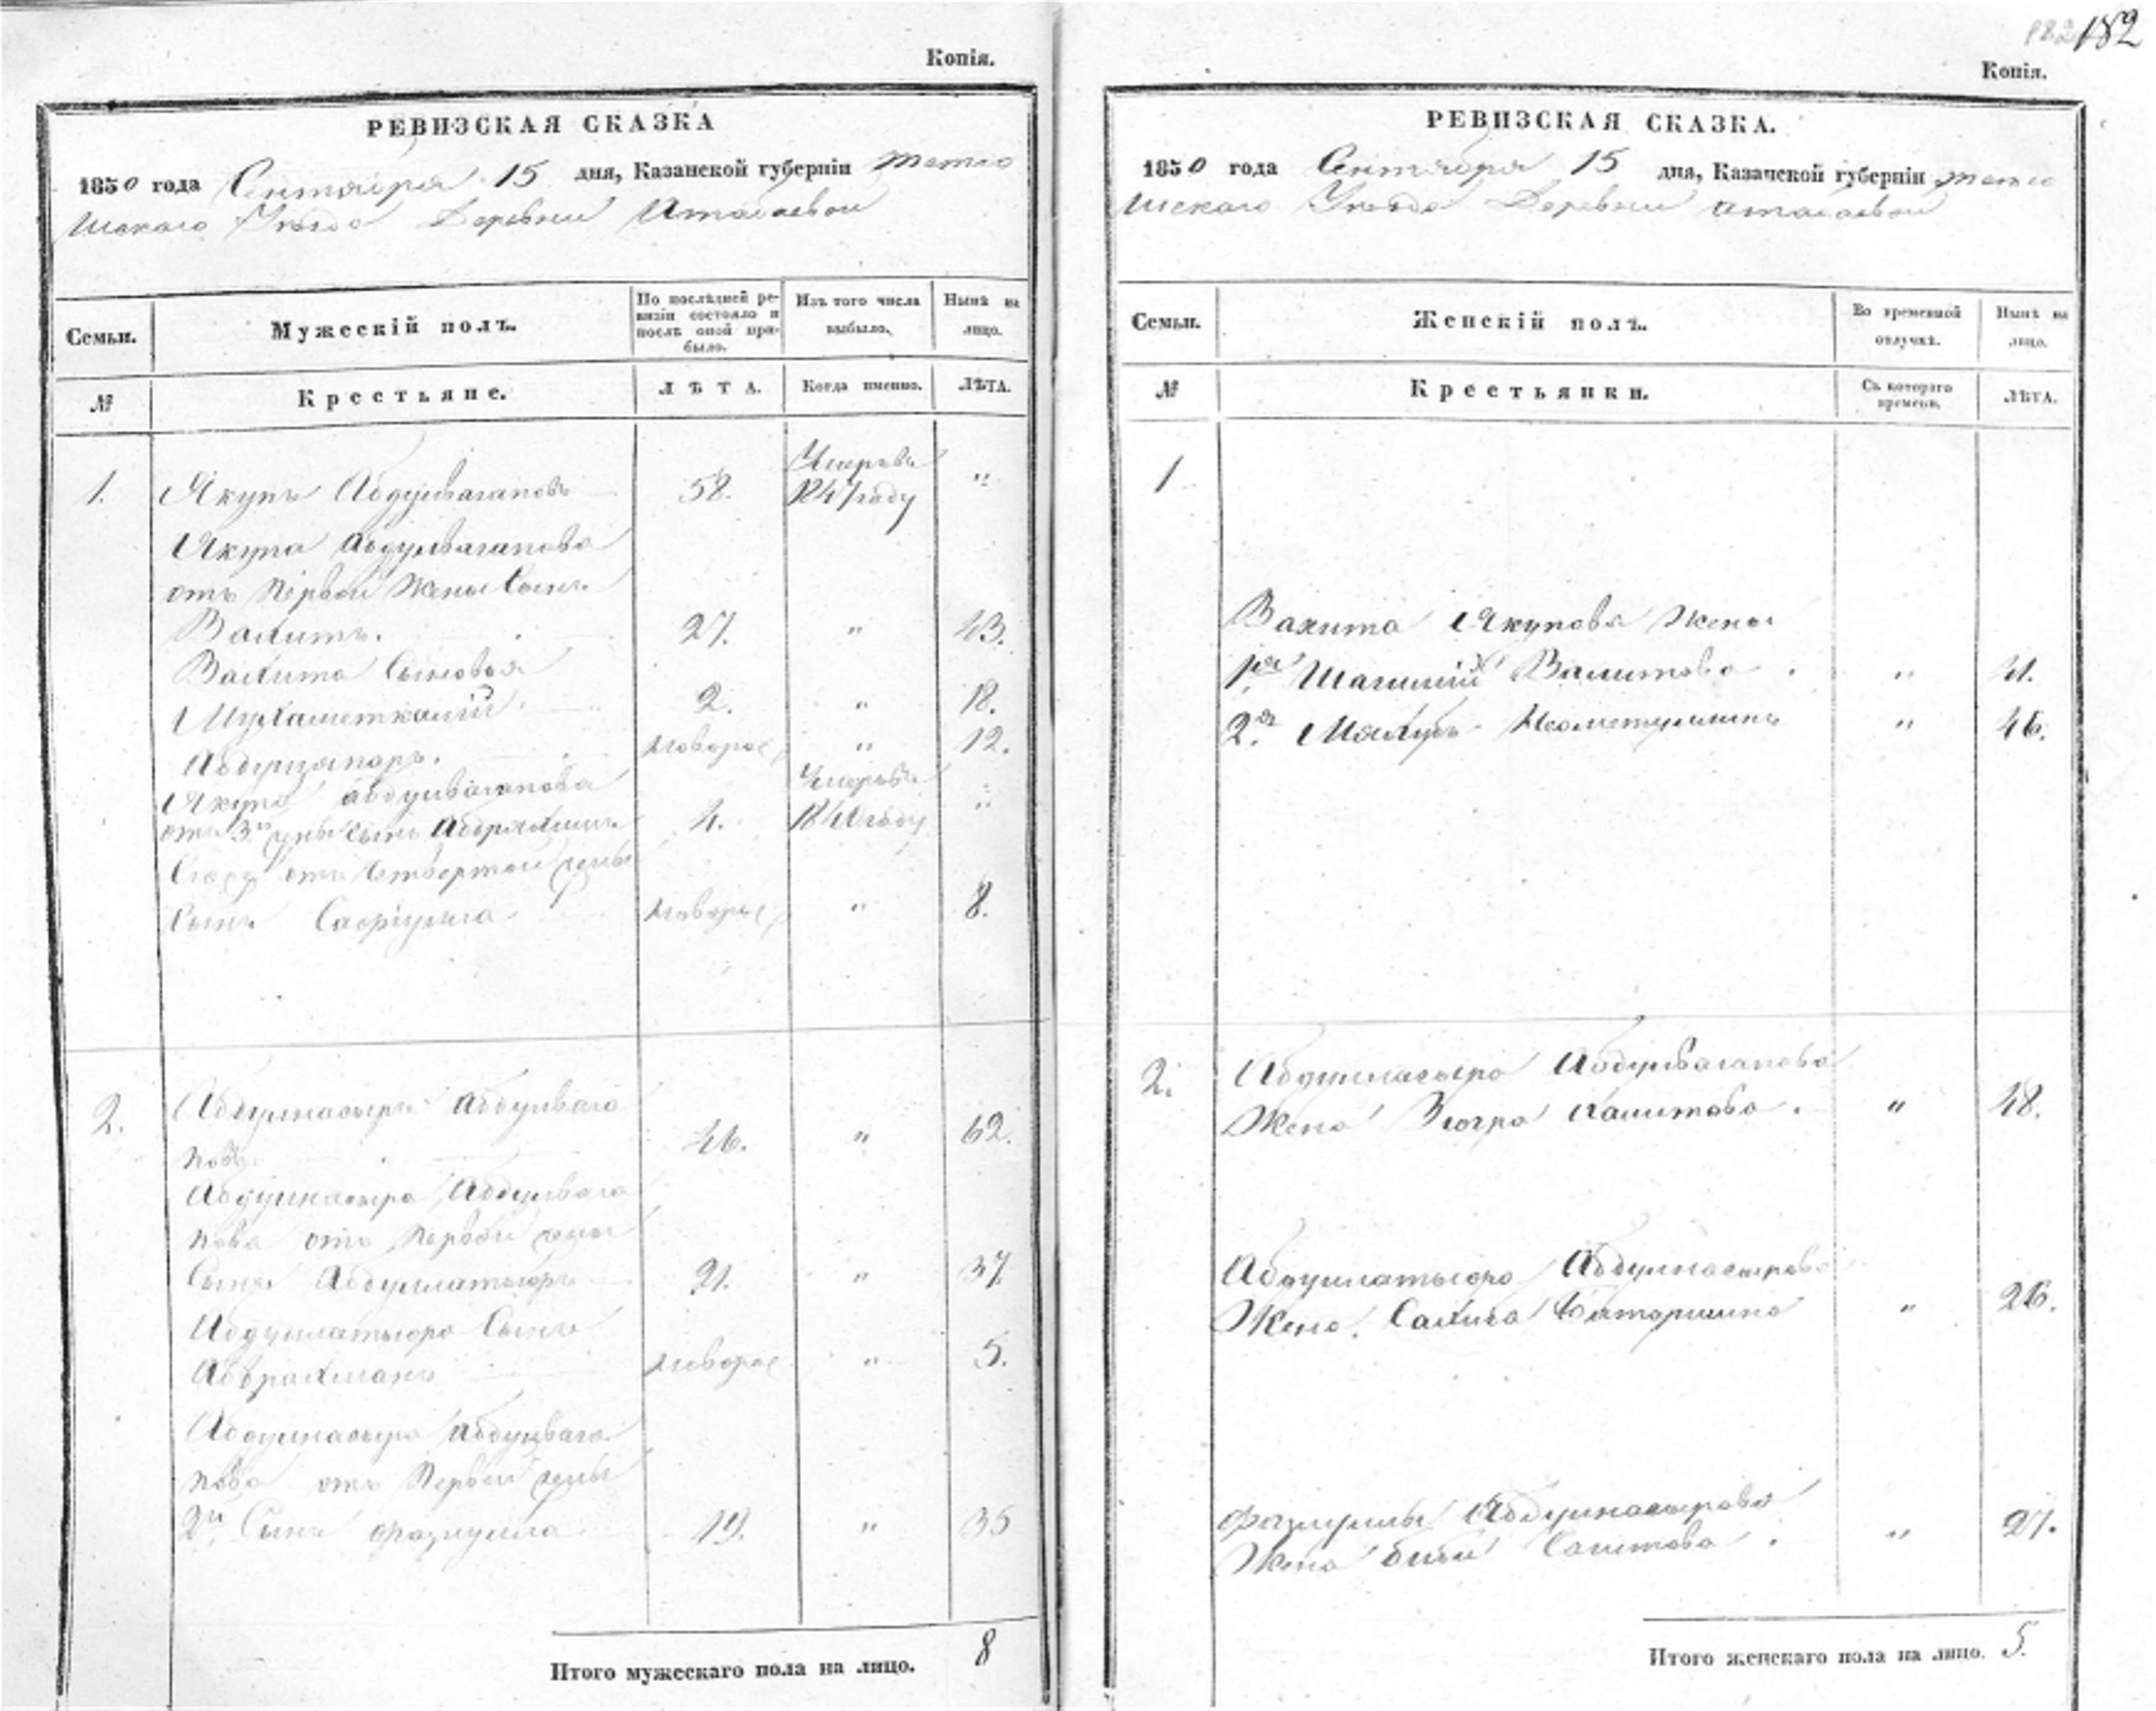 182 182
Копія.
РЕВИЗСКАЯ СКАЗКА
1850 года Сентября 15 дня, Казанской губерніи Тетю
шскаго Уѣзда Деревни Атабаевой
Семьи.
Мужескій полъ.
По послѣдней ре-
визіи состояло и
послѣ оной при-
было.
Изъ того числа
выбыло.
Нынѣ на
лицо.
№
Крестьяне.
ЛѢТА.
Когда именно.
ЛѢТА.
1. Якупъ Абдулвагаповъ 58. Умеръ въ 1847 году "
Якупа Абдулвагапова
отъ первой жены сынъ
Вахитъ. 27. " 43.
Вахита сыновья
2. " 18.
Абдулзяпаръ. новорож " 12.
Якупа Абдулвагапова
отъ 3й сынъ 4. Умеръ въ году "
отъ четвертой жены
сынъ Сафіулла новорож " 8.
2. Абдулнасыръ Абдулвага
повъ 46. " 62.
Абдулнасыра Абдулвага
пова отъ первой жены
сынъ Абдуллатыфъ 21. " 37.
Абдуллатыфа сынъ
Абдрахманъ новорож " 5.
Абдулнасыра Абдулвага
пова отъ первой жены
2й сынъ Фазлулла 19. " 35
Итого мужескаго пола на лицо. 8
Копія.
РЕВИЗСКАЯ СКАЗКА.
1850 года Сентября 15 дня, Казанской губерніи Тетю
шскаго Уѣзда Деревни Атабаевой
Семьи.
Женскій полъ.
Во временной
отлучкѣ.
Нынѣ на
лицо.
№
Крестьянки.
Съ котораго
времени.
ЛѢТА.
1
Вахита Якупова жены
1я Валитова " 41.
2я " 46.
2. Абдулнасыра Абдулвагапова
жена Зюгра Халитова. " 48.
Абдуллатыфа Абдулнасырова
жена Салиха " 26.
Фазлуллы Абдулнасырова
жена Биби Саитова. " 27.
Итого женскаго пола на лицо. 5.